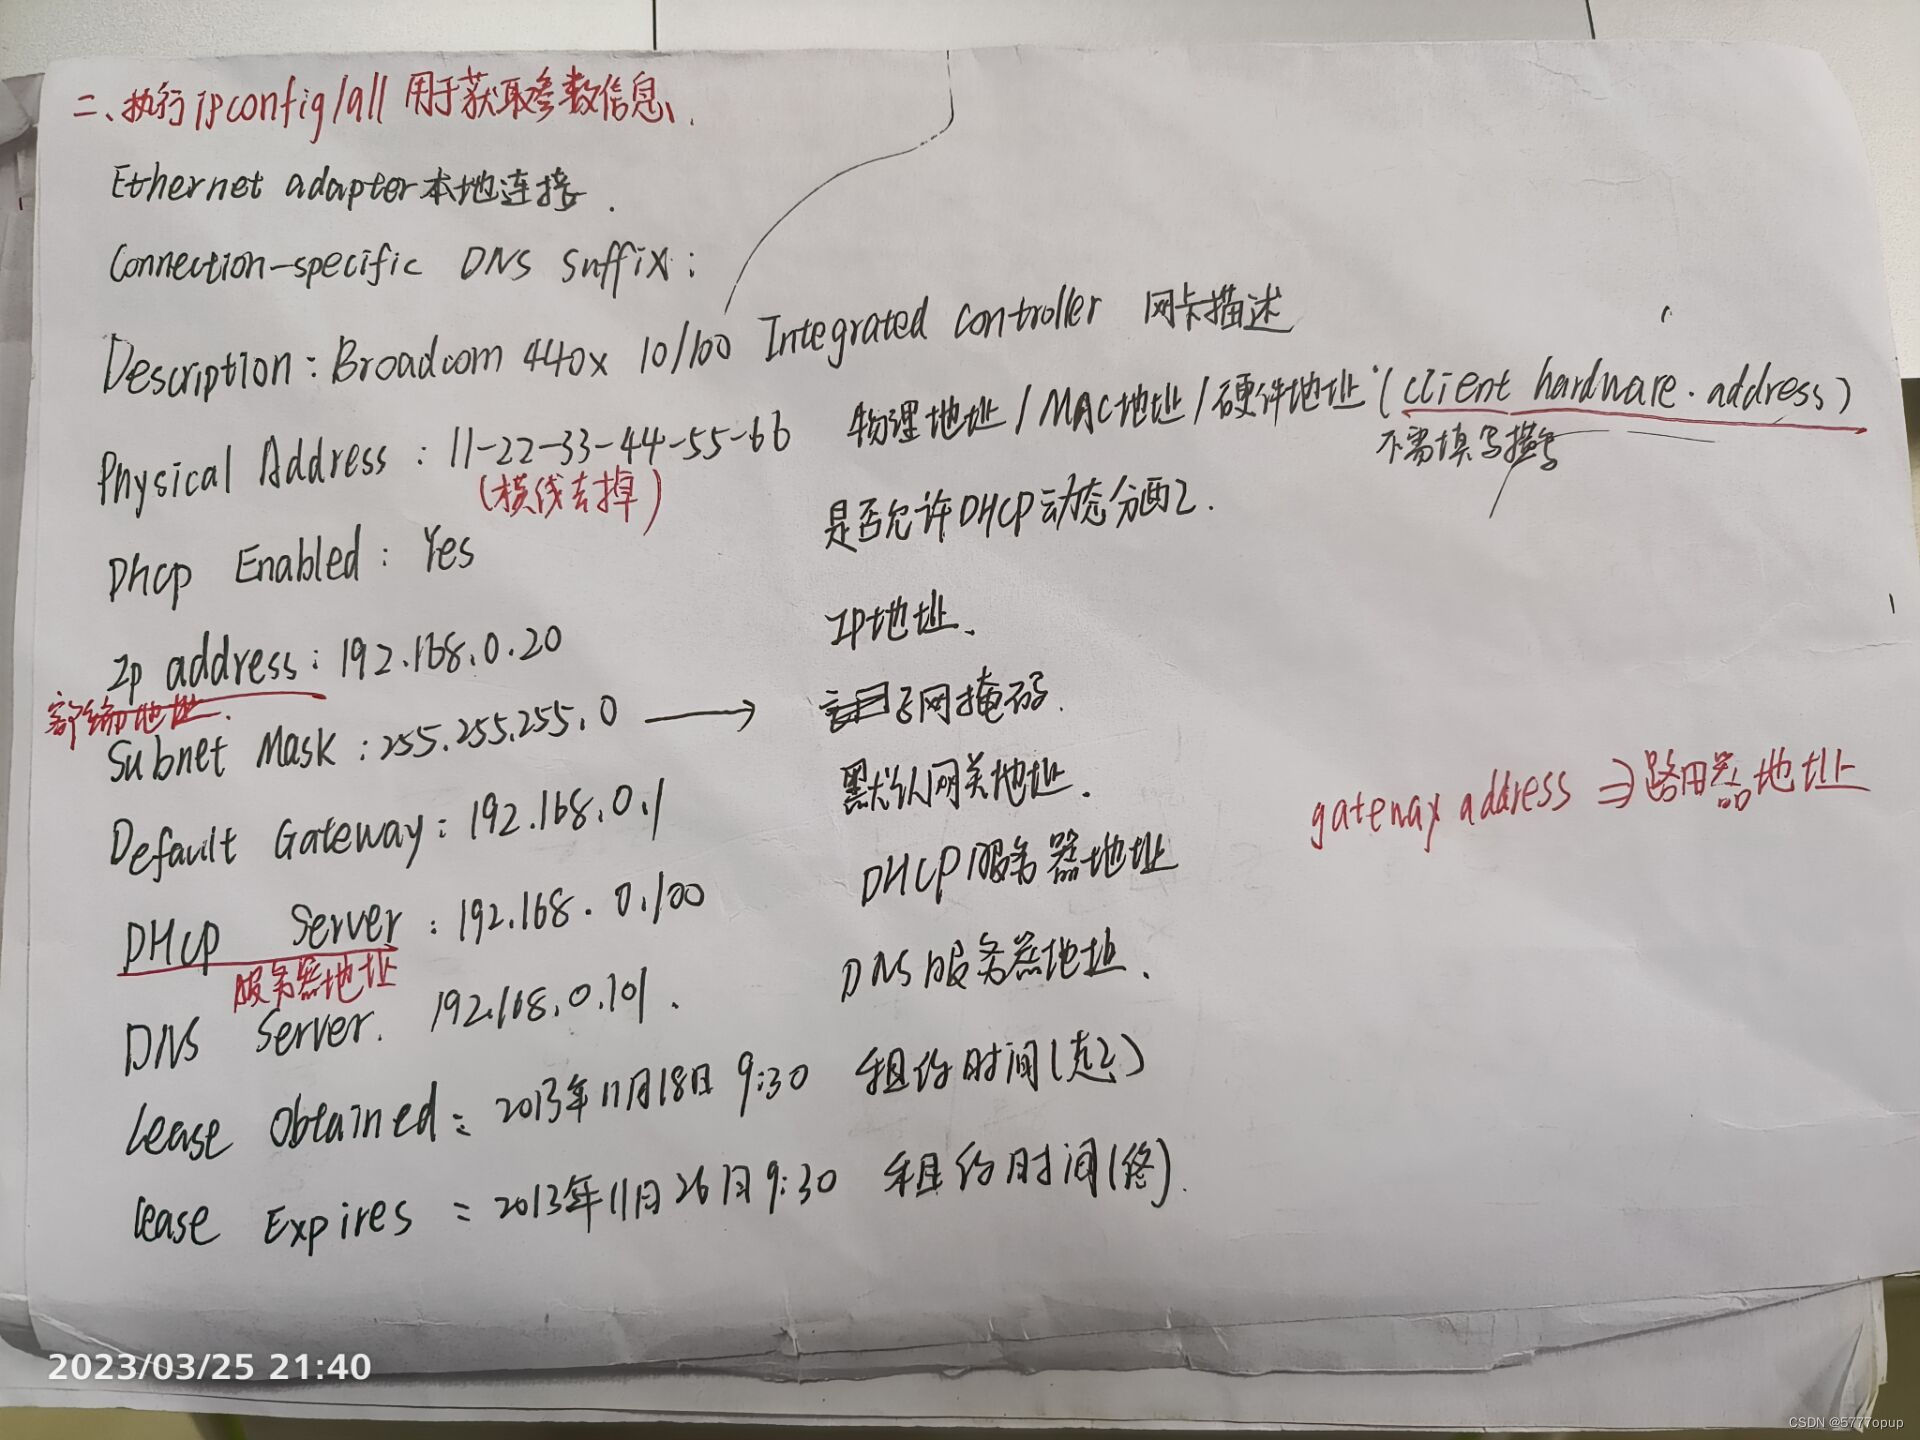 二、执行ipconfig/all 用于获取参数信息、.
Ethernet adapter本地连接.
Connection-specific DNS suffix:
Description: Broadcom 440x 10/100 Integrated controller 网卡描述
Physical Address: 11-22-33-44-55-66 物理地址/MAC地址/硬件地址(client hardware.address)
(横线去掉)
不需填写横号
Dhcp Enabled: Yes 是否允许DHCP动态分配2.
Ip address: 192.168.0.20 IP地址、
客户端地址.
Subnet Mask: 255.255.255.0 → 子网掩码.
Default Gateway: 192.168.0.1 默认网关地址.
gateway address ⇒路由器地址
DHCP Server: 192.168.0.100 DHCP服务器地址
服务器地址
DNS Server. 192.168.0.101. DNS服务器地址.
Lease Obtained: 2013年11月18日 9:30 租约时间(起)
lease Expires = 2013年11月26日9:30 租约时间(终).
2023/03/25 21:40
CSDN @5777opup